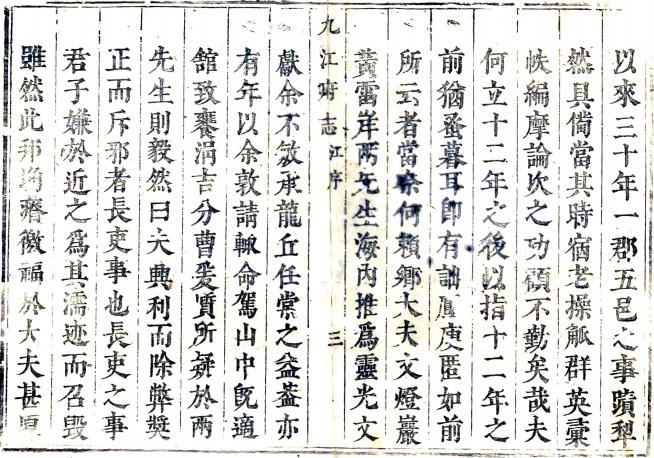 以來三十年一郡五邑之事蹟犁
然具備當其時宿老操觚群英彙
帙編摩論次之功顧不勤矣哉夫
何立十二年之後以指十二年之
前猶蚤暮耳即有詘匿如前
所云者當柰何賴鄉大夫文燈巖
黃雷岸兩先生海內推爲靈光文
九江府志 江序 三
獻余不敏承龍丘任棠之益蓋亦
有年以余敦請輙命駕山中既適
館致饔涓吉分曹爰質所疑於兩
先生則毅然曰夫興利而除弊獎
正而斥邪者長吏事也長吏之事
君子嫌於近之爲其濡迹而召毀
雖然此邦埆瘠徼福於大夫甚厚